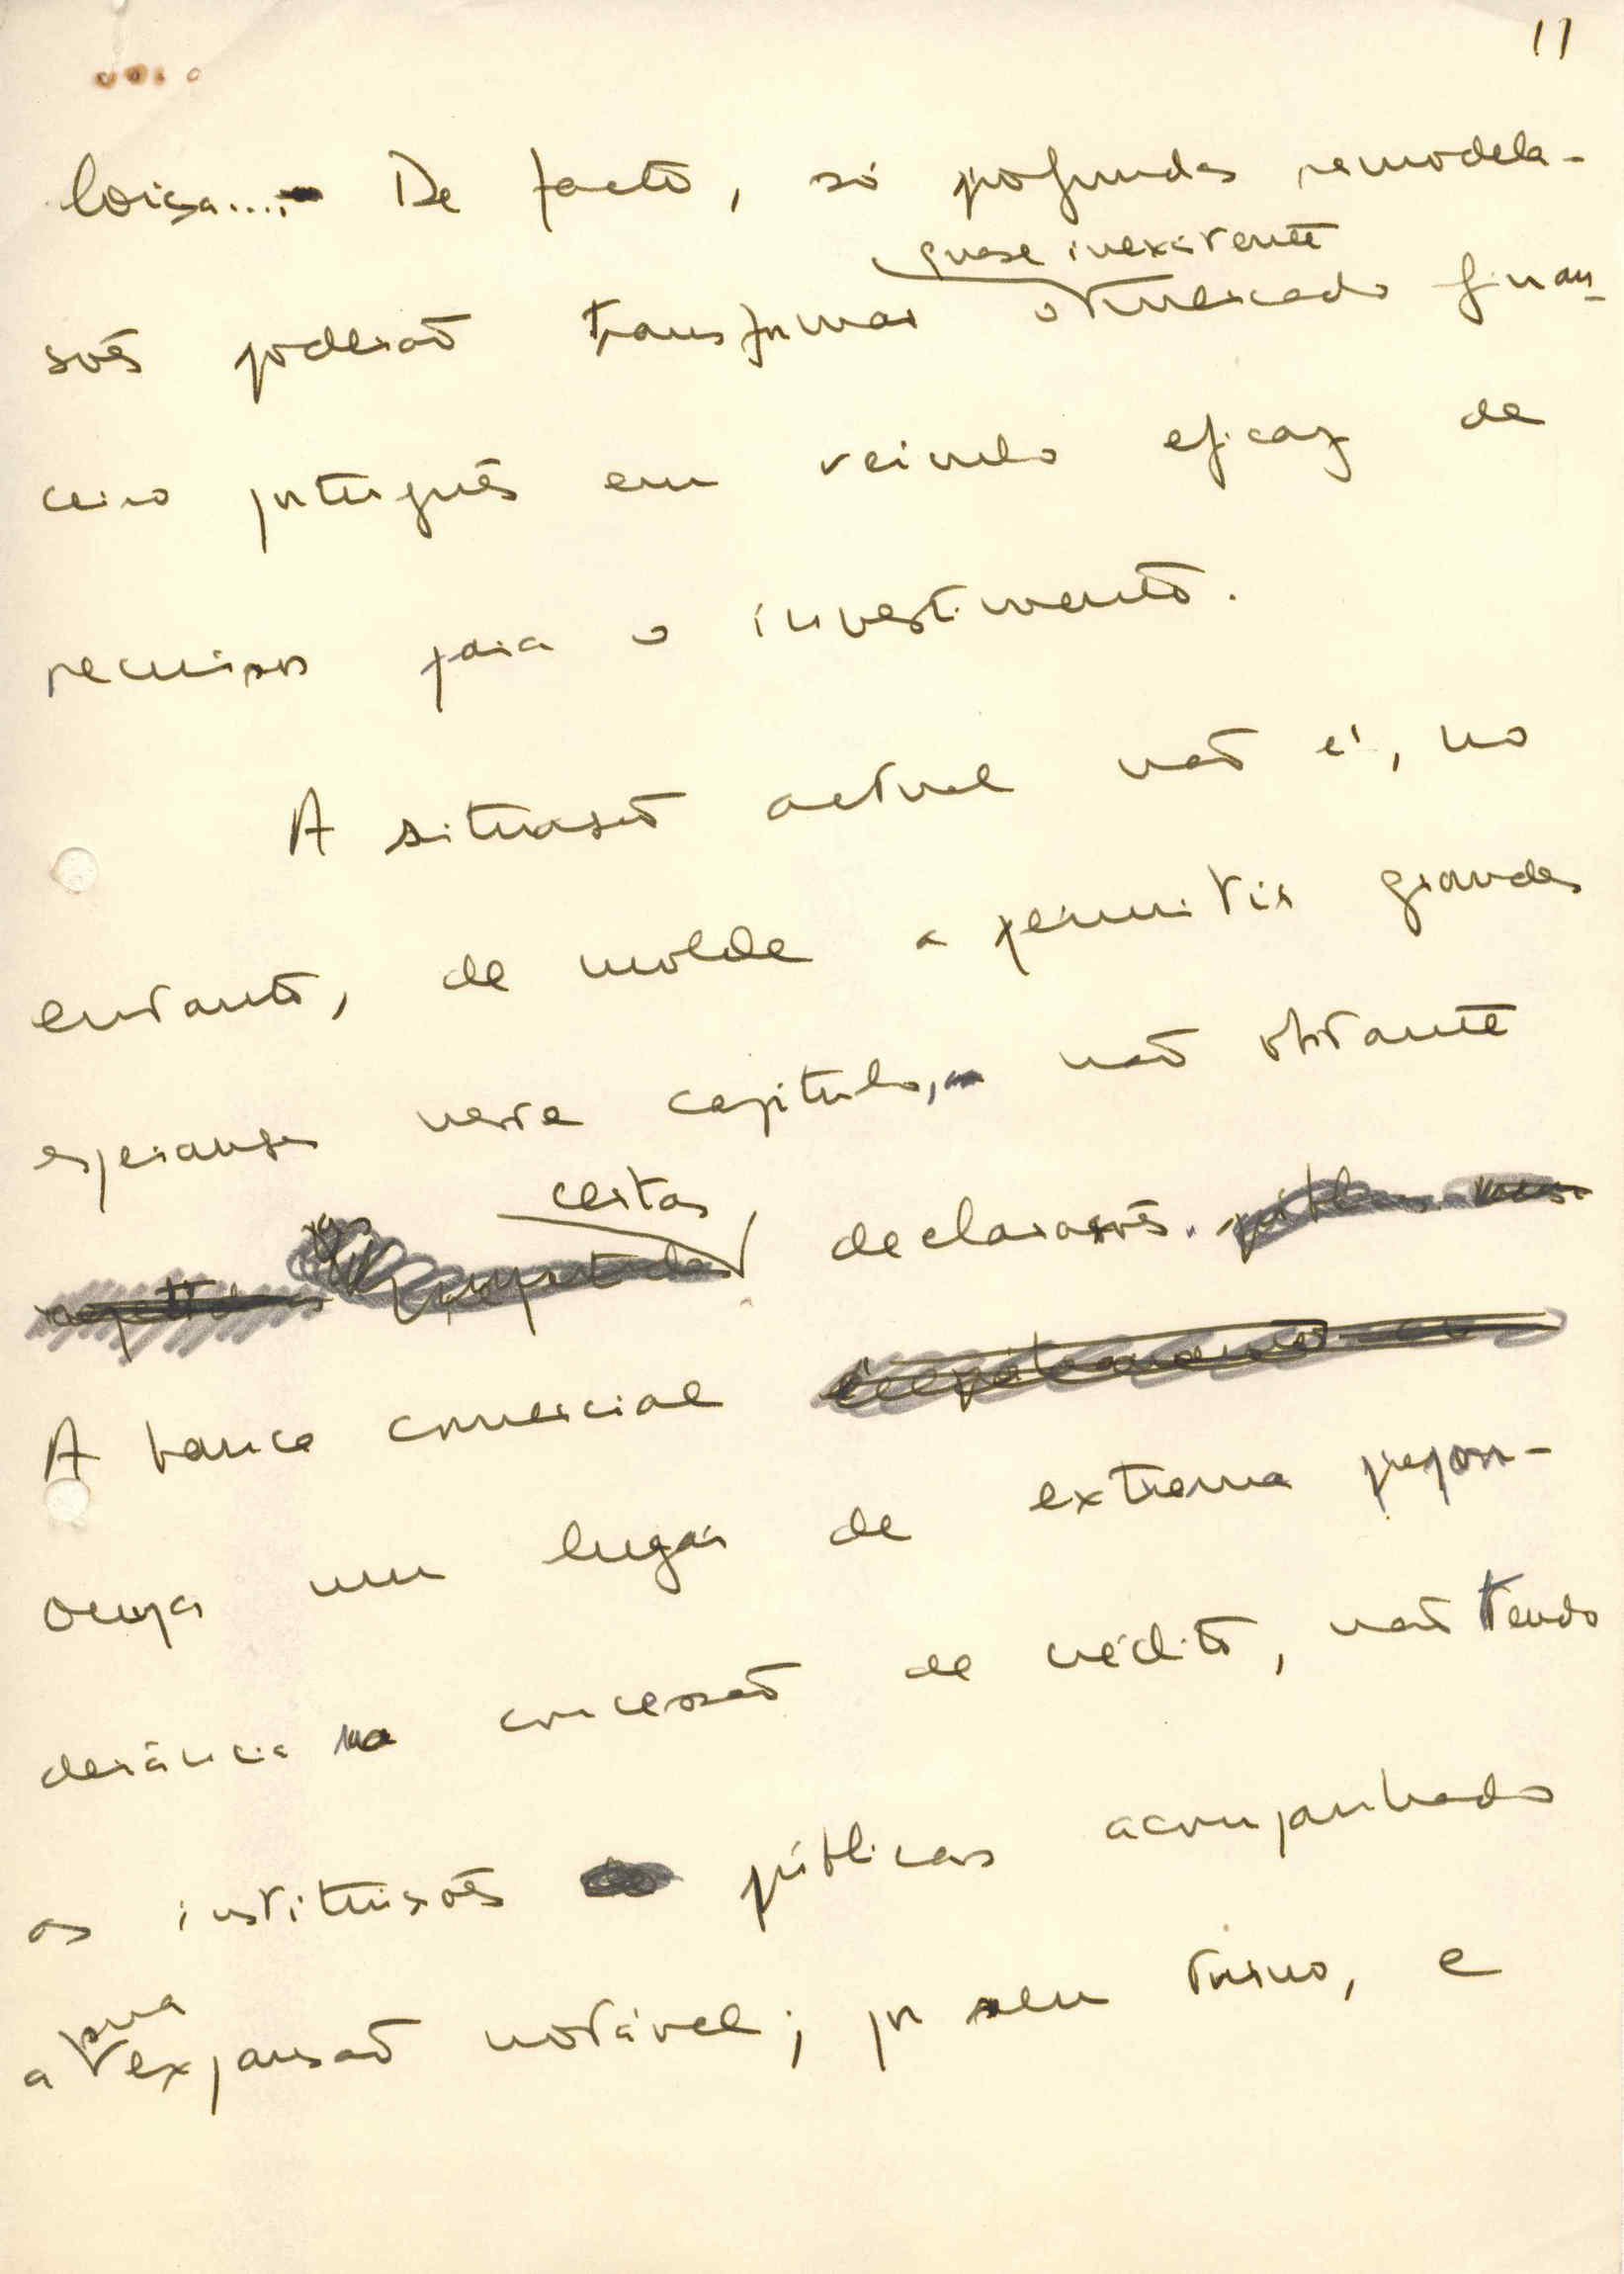 11
coisa.... De facto, só profundas remodela-
quase inexistente
ções poderão transformar o mercado finan-
ceiro português em veículo eficaz de
recursos para o investimento.
A situação actual não é, no
entanto, de molde a permitir grandes
esperanças nesse capítulo, não obstante
certas
declarações.
A banca comercial
ocupa um lugar de extrema prepon-
derância na concessão de crédito, não tendo
as instituições públicas acompanhado
sua
a expansão notável; por seu turno, e